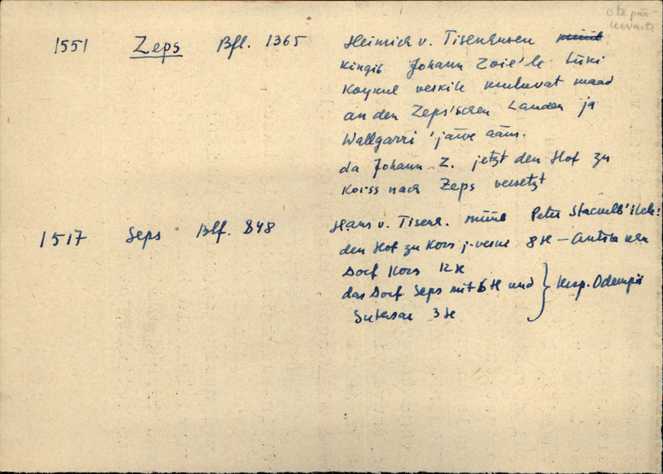 Otepää
1551 Zeps Bfl. 1365 Heinrich v. Tisenhusen müüb
kingib Johann Zoie'le
veskile kuuluvat maad
an den Zeps'schen Landen ja
Wallgarri järve ääres.
da Johann Z. jetzt den Hof zu
Korss nach Zeps versetzt
1517 Seps Blf. 848 Hans v. Tisenh. müüb Peter Stackelb'ile:
den Hof zu Kors j. 8 H –
Dorf Kors 12 H
das Dorf Seps mit 6 H und } Kesp. Odempä
3 H